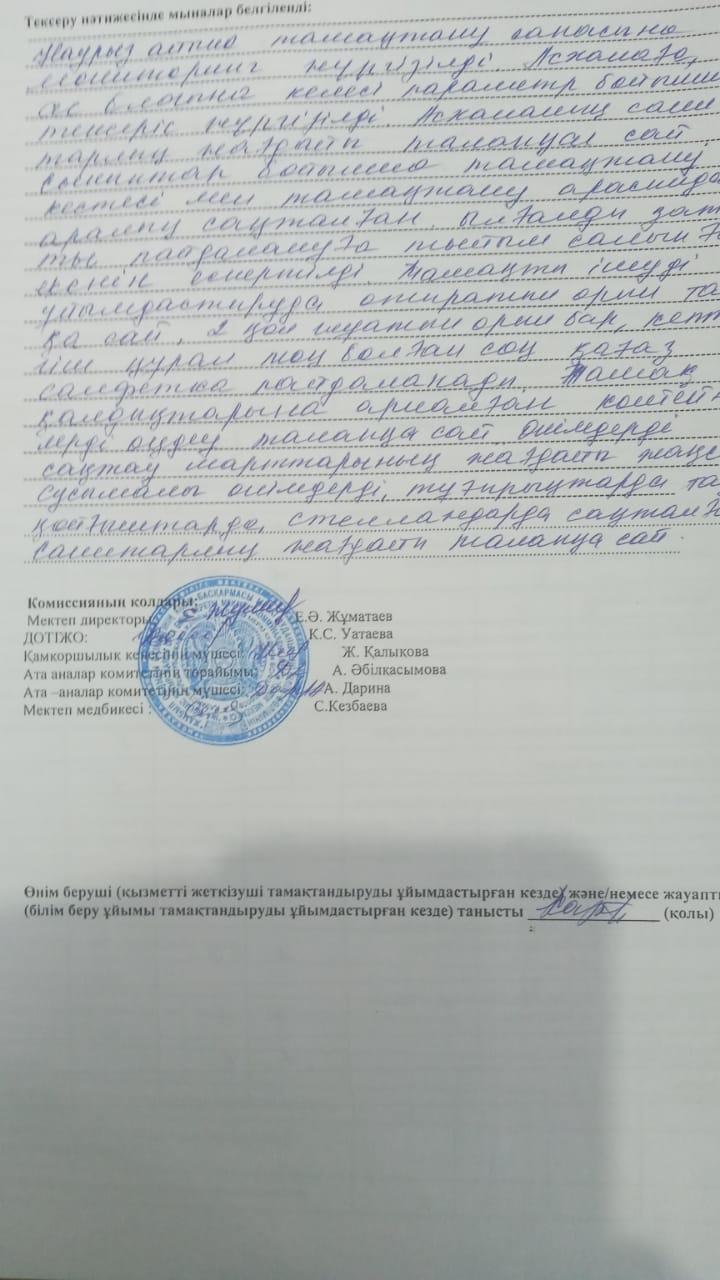 Тексеру нәтижесінде мыналар белгіленді:
Наурыз айына тамақтану сапасына
мониторинг жүргізілді. Асханаға,
ас блогына келесі параметр бойынша
тексеріс жүргізілді. Асхананың сани
тарлық жағдайы талапқа сай
Сыныптар бойынша тамақтану
кестесі мен тамақтану арасында
аралық сақталған. ылғалды зат
ты пайдалануға тыйым салын
екенін ескертілді. Тамақты ішуді
ұйымдастыруда отыратын орын та
қа сай, 2 қол жуатын орын бар, кепт
гіш құрал жоқ болған соң қағаз
салфетка пайдаланады. Тамақ
қалдықтарына арналған контейн
лерді өңдеу талапқа сай. өнімдерді
сақтау шарттарының жағдайы жақс
Сусымалы өнімдерді, тұғырықтарда та
қойғыштарда, стелландарда сақталғ
Санитарлық жағдайы талапқа сай.
Комиссияның қолдары:
Мектеп директоры: Е.Ә. Жұматаев
ДОТІЖО: К.С. Уатаева
Қамқоршылық кеңесінің мүшесі: Ж. Қалықова
Ата аналар комитетінің төрайымы: А. Әбілқасымова
Ата –аналар комитетінің мүшесі: А. Дарина
Мектеп медбикесі : С.Кезбаева
Өнім беруші (қызметті жеткізуші тамақтандыруды ұйымдастырған кезде) және/немесе жауапты
(білім беру ұйымы тамақтандыруды ұйымдастырған кезде) танысты (қолы)